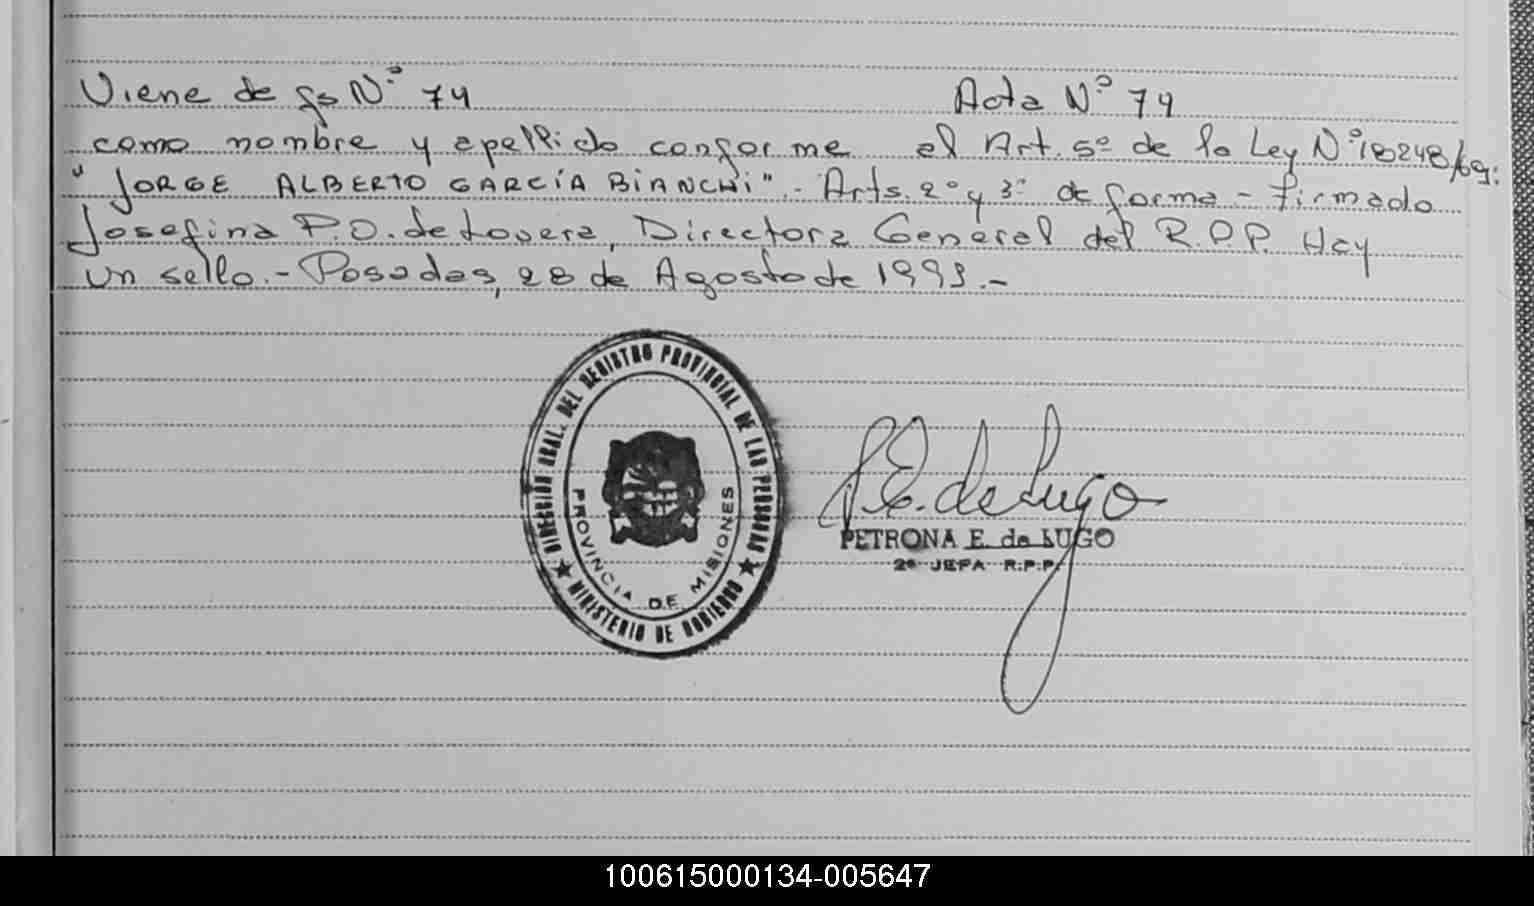 Viene de fs Nº 74 Acta Nº 74
como nombre y apellido conforme el Art. 5º de la Ley Nº 18248/69:
"JORGE ALBERTO GARCÍA BIANCHI".- Arts. 2º y 3º de forma - firmado
Josefina P.O. de Lovera, Directora General del R.P.P. Hay
un sello.- Posadas, 28 de Agosto de 1993.-
DIRECCIÓN GRAL. DEL REGISTRO PROVINCIAL DE LAS PERSONAS
PROVINCIA DE MISIONES
★ MINISTERIO DE GOBIERNO ★
P.E. de Lugo
PETRONA E. de LUGO
2º JEFA R.P.P.
100615000134-005647